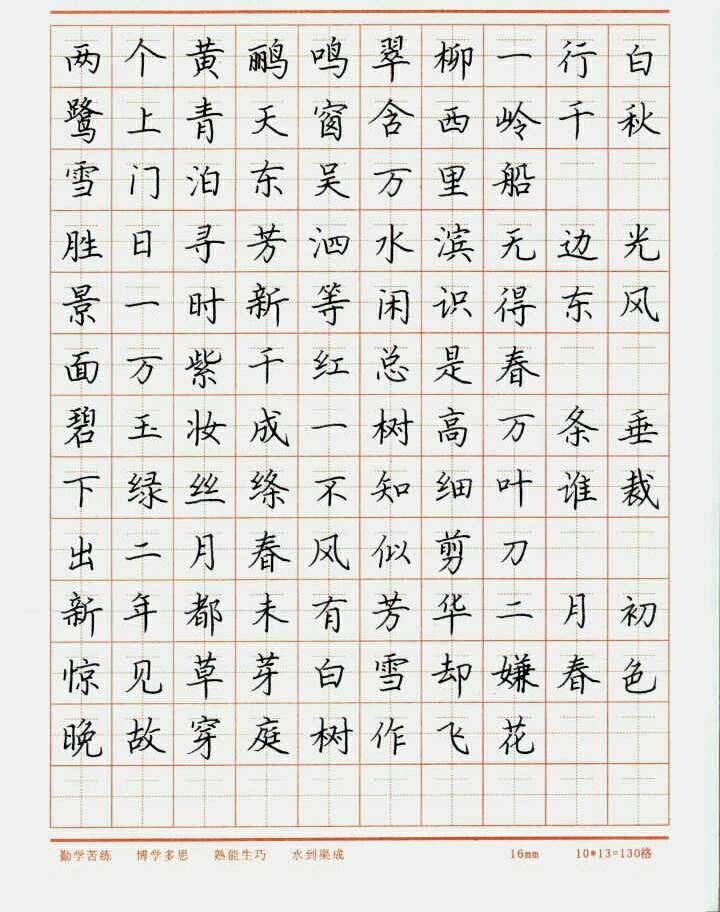 两个黄鹂鸣翠柳一行白
鹭上青天窗含西岭千秋
雪门泊东吴万里船
胜日寻芳泗水滨无边光
景一时新等闲识得东风
面万紫千红总是春
碧玉妆成一树高万条垂
下绿丝绦不知细叶谁裁
出二月春风似剪刀
新年都未有芳华二月初
惊见草芽白雪却嫌春色
晚故穿庭树作飞花
勤学苦练 博学多思 熟能生巧 水到渠成 16mm 10*13=130格